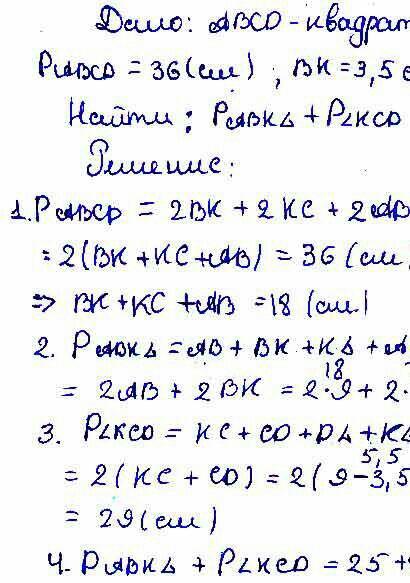 Дано: ABCD - квадрат
PABCD = 36 (см) ; BK = 3,5 с
Найти : PABKL + PLKCD
Решение :
1. PABCD = 2BK + 2KC + 2AB
= 2(BK + KC + AB) = 36 (см)
=> BK + KC + AB = 18 (см)
2. PABKL = AB + BK + KL + A
18
= 2AB + 2BK = 2·9 + 2·
3. PLKCD = KC + CD + DL + KL
5,5
= 2(KC + CD) = 2(9 - 3,5
= 29 (см)
4. PABKL + PLKCD = 25 +